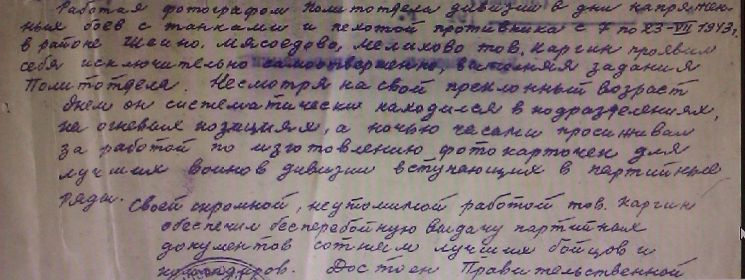 Работая фотографом Политотдела дивизии в дни напряжен-
ных боев с танками и пехотой противника с 7 по 23-VII 1943 г.
в районе Шеино, Мясоедово, Мелахово тов. Каргин проявил
себя исключительно самоотверженно, выполняя задания
Политотдела. Несмотря на свой преклонный возраст
днем он систематически находился в подразделениях,
на огневых позициях, а ночью часами просиживал
за работой по изготовлению фотокарточек для
лучших воинов дивизии вступающих в партийные
ряды.
Своей скромной, неутомимой работой тов. Каргин
обеспечил бесперебойную выдачу партийных
документов сотням лучших бойцов и
командиров. Достоин Правительственной